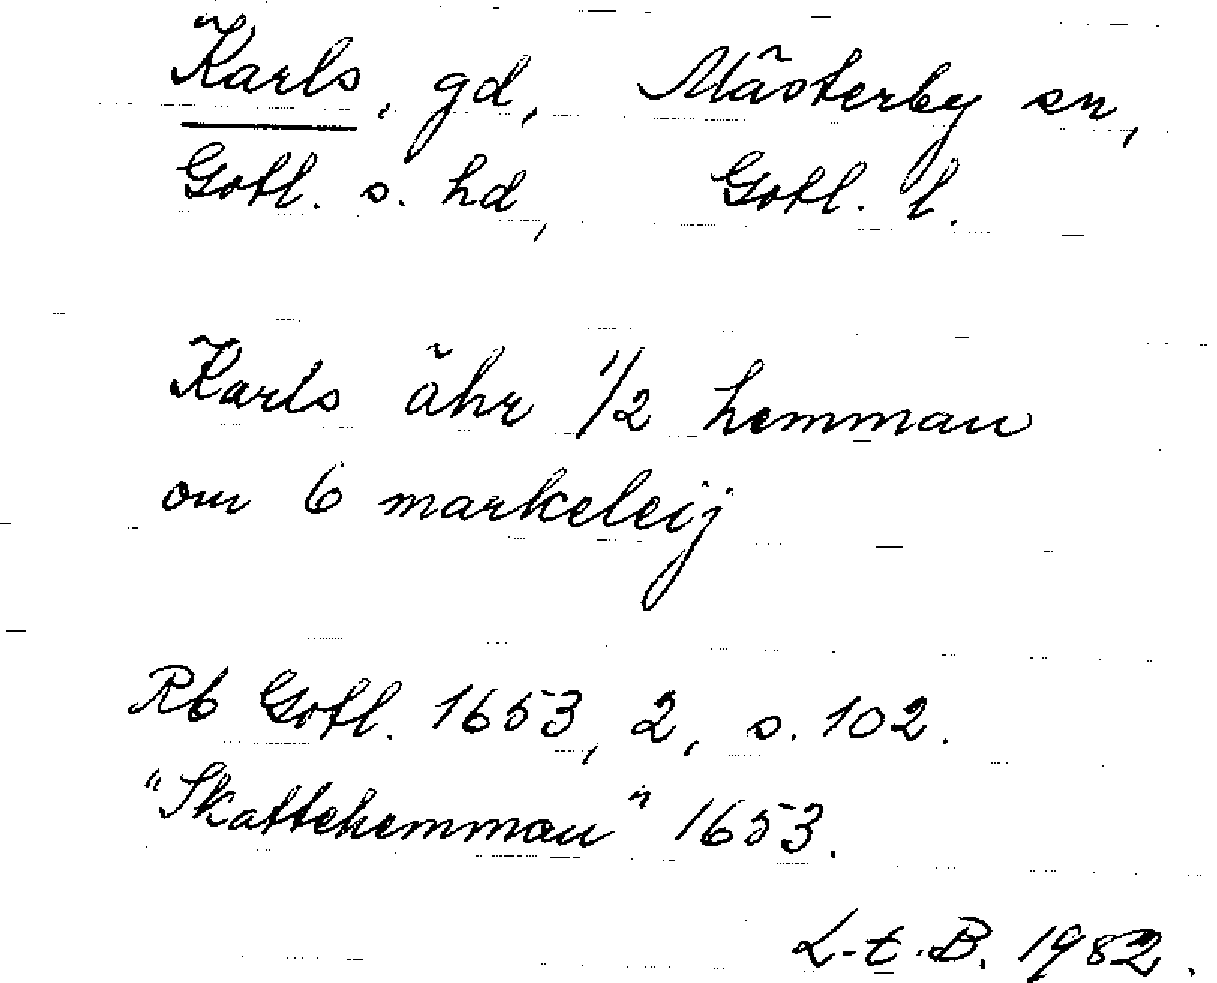 Karls, gd, Mästerby sn,
Gotl. s. hd, Gotl. l.
Karls ähr 1/2 hemman
om 6 markeleij
Rb Gotl. 1653, 2, s. 102.
"Skattehemman" 1653.
L.t.B. 1982.